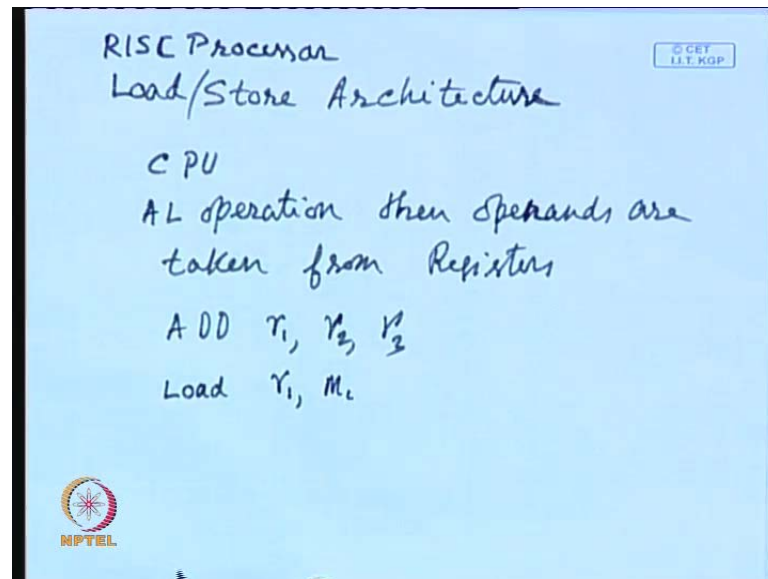 RISC Processor
© CET
I.I.T. KGP
Load/Store Architecture
CPU
AL operation then operands are
taken from Registers
ADD r1, r2, r3
Load r1, M
NPTEL